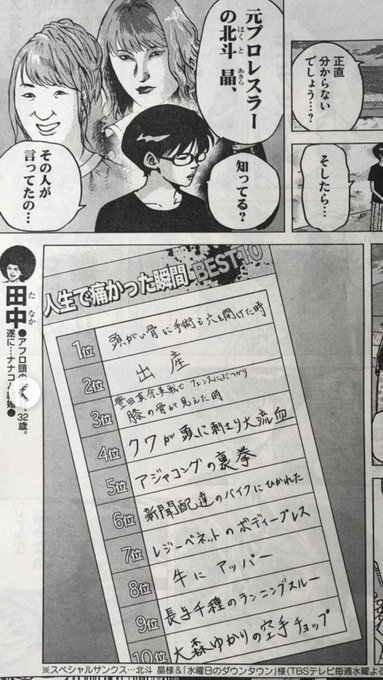 正直
分からない
でしょう…?
そしたら…
元プロレスラー
の北斗晶、
ほくと
あきら
知ってる?
その人が
言ってたの…
人生で痛かった瞬間BEST10
1位 頭がい骨に手術で穴を開けた時
2位 出産
3位 豊田真奈美戦でフェンスにぶつかり
膝の骨が見えた時
4位 クワが頭に刺さり大流血
5位 アジャコングの裏拳
6位 新聞配達のバイクにひかれた
7位 レジーベネットのボディープレス
8位 牛にアッパー
9位 長与千種のランニングスルー
10位 大森ゆかりの空手チョップ
田中
たなか
●アフロ頭の
32歳。
遂に…ナナコ
●
※スペシャルサンクス…北斗 晶様&「水曜日のダウンタウン」様(TBSテレビ毎週水曜よ